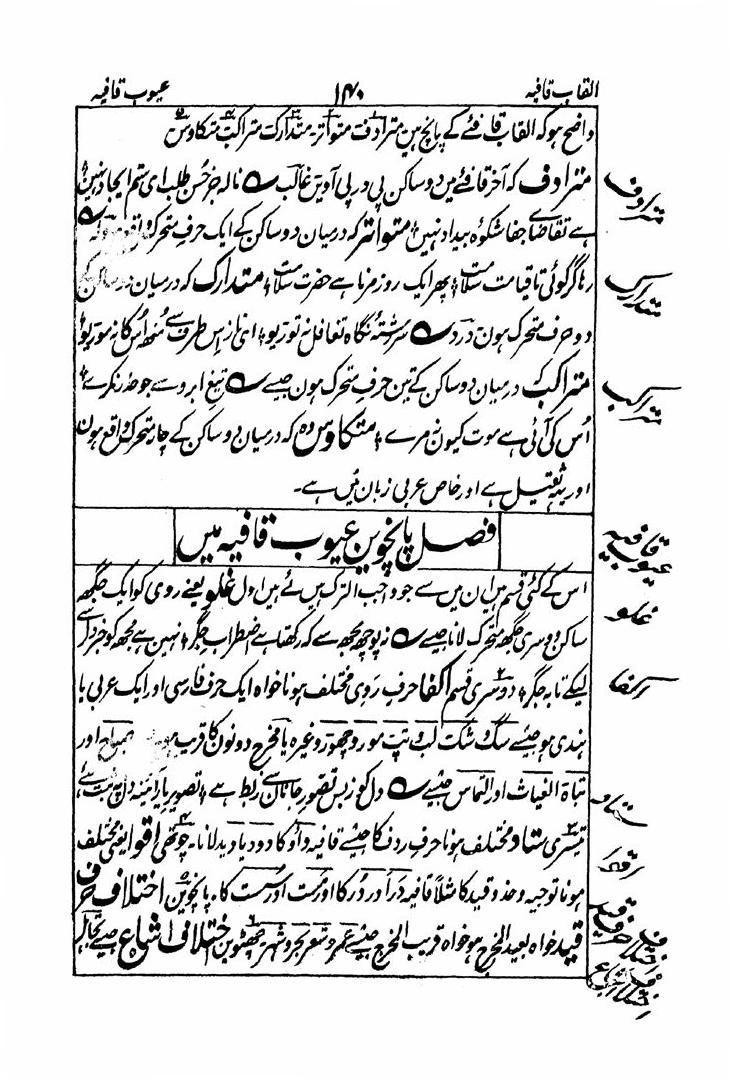 القاب قافیہ ۱۴۰ عیوب قافیہ
واضح ہو کہ القاب قافئے کے پانچ ہین مترادف متواتر متدارک متراکب متکاوس
مترادف کہ آخر قافئے مین دو ساکن پی در پی آوین غالب نالہ جز حسن طلب ای ستم ایجاد نہین
ہے تقاضاے جفا شکوۂ بیداد نہین متواتر کہ درمیان دو ساکن کے ایک حرف متحرک واقع ہو
رہا گر کوئی تا قیامت سلامت پھر ایک روز مرنا ہے حضرت سلامت متدارک کہ درمیان دو ساکن کے
دو حرف متحرک ہون درد سررشتۂ نگاہ تغافل نہ توڑیو اس طرف سے منھ اُس کا نہ موڑیو
متراکب درمیان دو ساکن کے تین حرف متحرک ہون جیسے تیغ ابرو سے جو حذر نکرے
اُس کی آئی ہے موت کیون نہ مرے متکاوس وہ کہ درمیان دو ساکن کے چار متحرک واقع ہون
اور یہ ثقیل ہے اور خاص عربی زبان مین ہے۔
فصل پانچوین عیوب قافیہ مین
اس کے کئی قسم ہین ان مین سے جو واجب الترک ہین اول غلو یعنے روی کو ایک جگھ
ساکن دوسری جگھ متحرک لانا جیسے نہ پوچھ مجھ سے کہ رکھتا ہے اضطراب جگر نہین ہے مجھ کو خبر دل سے
لیکے تا بہ جگر دوسری قسم اکفا حرف روی مختلف ہونا خواہ ایک حرف فارسی اور ایک عربی یا
ہندی ہو جیسے سگ و شک لب و تپ مور و چھوڑ وغیرہ یا مخرج دونون کا قریب اور
تباۃ الغیاث اور التماس جیسے دل کو زبس تصور جانان سے ربط ہے تصویر یار آئینہ دل پہ ثبت ہے
تیسری سناد مختلف ہونا حرف ردف کا جیسے قافیہ داد کا دود یا دید لانا۔ چوتھی اقوا یعنی مختلف
ہونا توجیہ و حذو قید کا مثلاً قافیہ در اور دُر کا اور مست اور سست کا۔ پانچوین اختلاف حرف
قید خواہ بعید المخرج ہو خواہ قریب المخرج جیسے عمر و شعر بحر و شہر چھٹوین اختلاف اشباع جیسے
مترادف
متدارک
متراکب
عیوب قافیہ
غلو
اکفا
سناد
اقوا
اختلاف حرف قید
اختلاف اشباع